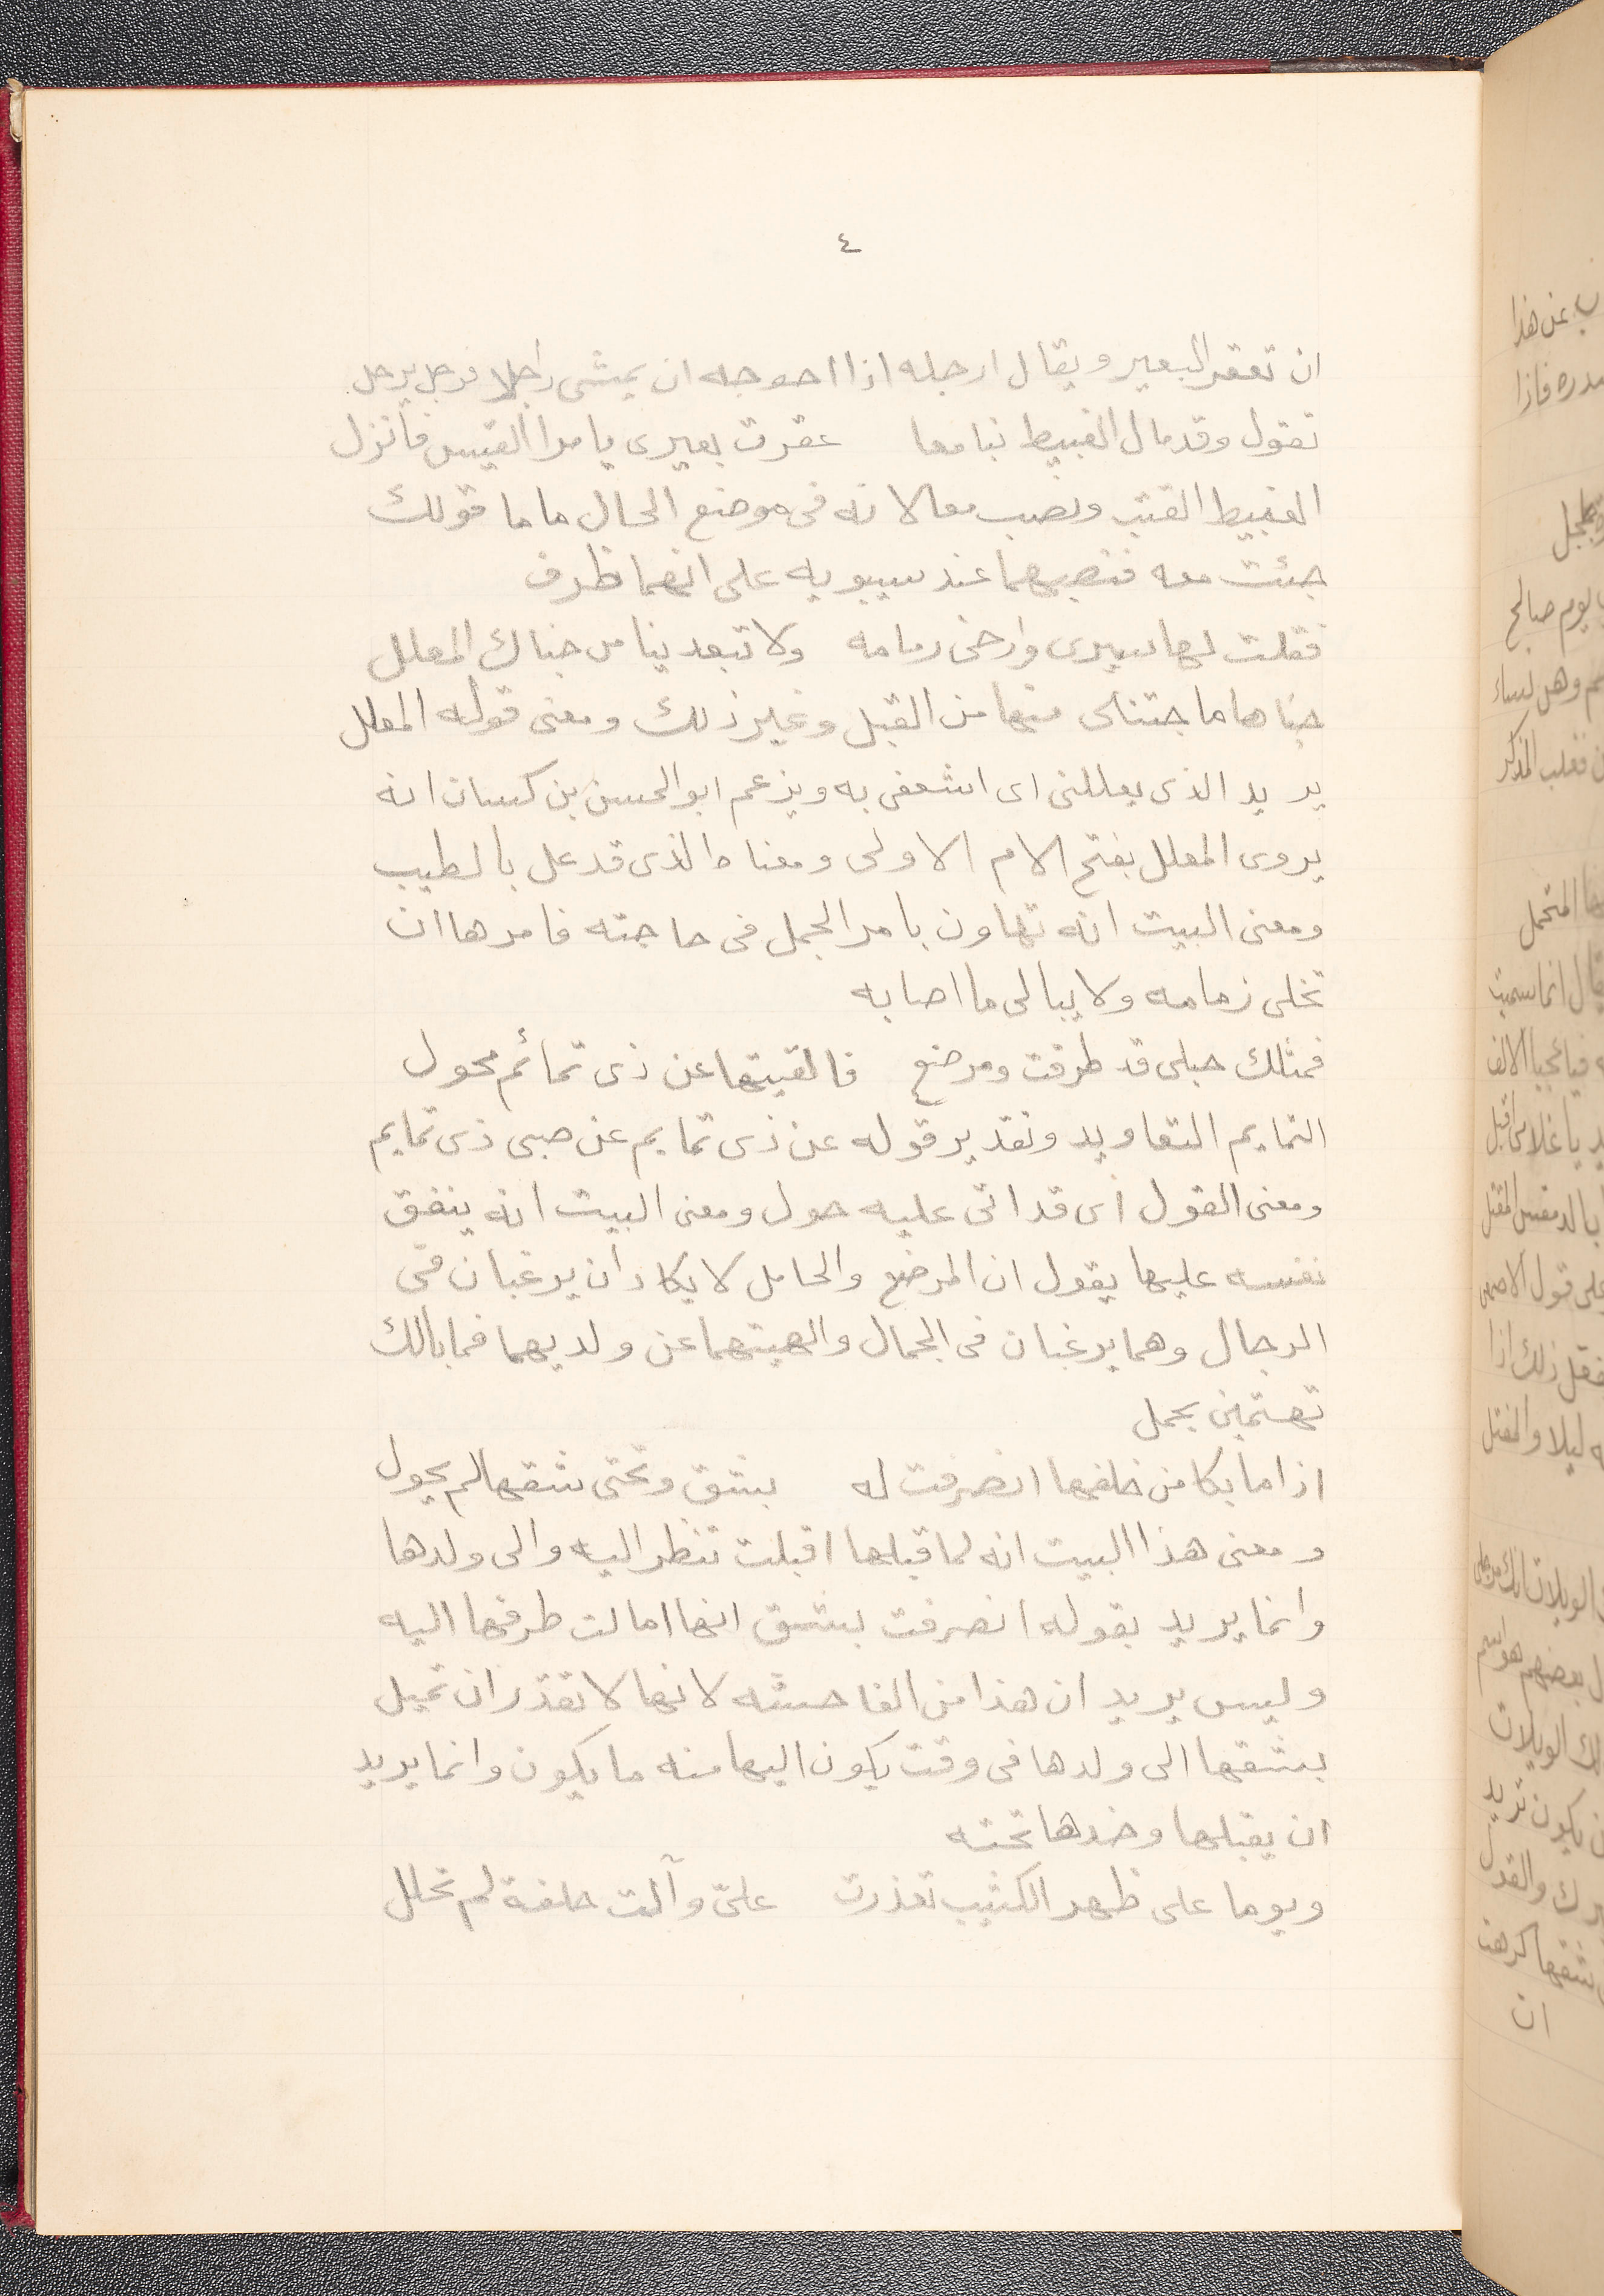 ٤
ان تعقر البعير ويقال ارجله اذا احوجه ان يمشى راجلا فرجل يرجل
تقول وقد مال الغبيط بنا معا عقرت بعيرى يا مرا القيس فانزل
الغبيط القتب ونصب معا لانه فى موضع الحال ماما قولك
جئت معه فنصبهما عند سيبويه على انهما ظرف
فقلت لها سيرى وارخى زمامه ولا تبعدينا من جناك المعلل
جناها ما جتنى منها من القبل وغير ذلك ومعنى قوله المعلل
يريد الذى يعللنى اى اتشفى به ويزعم ابو الحسن بن كسان انه
يروى المعلل بفتح الام الاولى ومعناه الذى قد عل بالطيب
ومعنى البيت انه تهاون بامر الجمل فى حاجته فامرها ان
تخلى زمامه ولا يبالى ما اصابه
فمثلك حبلى قد طرقت ومرضع فالقيتها عن ذى تمائم محول
التمايم التعاويد وتقدير قوله عن ذى تمايم عن صبى ذى تمايم
ومعنى القول أى قد اتى عليه حول ومعنى البيت انه ينفق
نفسه عليها يقول ان المرضع والحامل لا يكادان يرغبان فى
الرجال وهما يرغبان فى الجمال والهيتهما عن ولديهما فما بالك
تهتمين بجمل
اذا ما بكا من خلفها انصرفت له بشق وتحتى شقها لم يحول
ومعنى هذا البيت انه لما قبلها اقبلت تنظر اليه والى ولدها
وانما يريد بقوله انصرفت بشق انها امالت طرفها اليه
وليس يريد ان هذا من الفاحشه لانها لا تقدر ان تميل
بشقها الى ولدها فى وقت يكون اليها منه ما يكون وانما يريد
ان يقبلها وخدها تحته
ويوما على ظهر الكثيب تعذرت علىّ وآلت حلفة لم تحلل